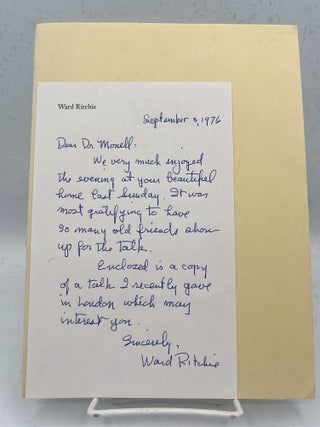 Ward Ritchie
September 3, 1976
Dear Dr Monell:
We very much enjoyed
the evening at your beautiful
home last Sunday. It was
most gratifying to have
so many old friends show
up for the talk.
Enclosed is a copy
of a talk I recently gave
in London which may
interest you.
Sincerely,
Ward Ritchie